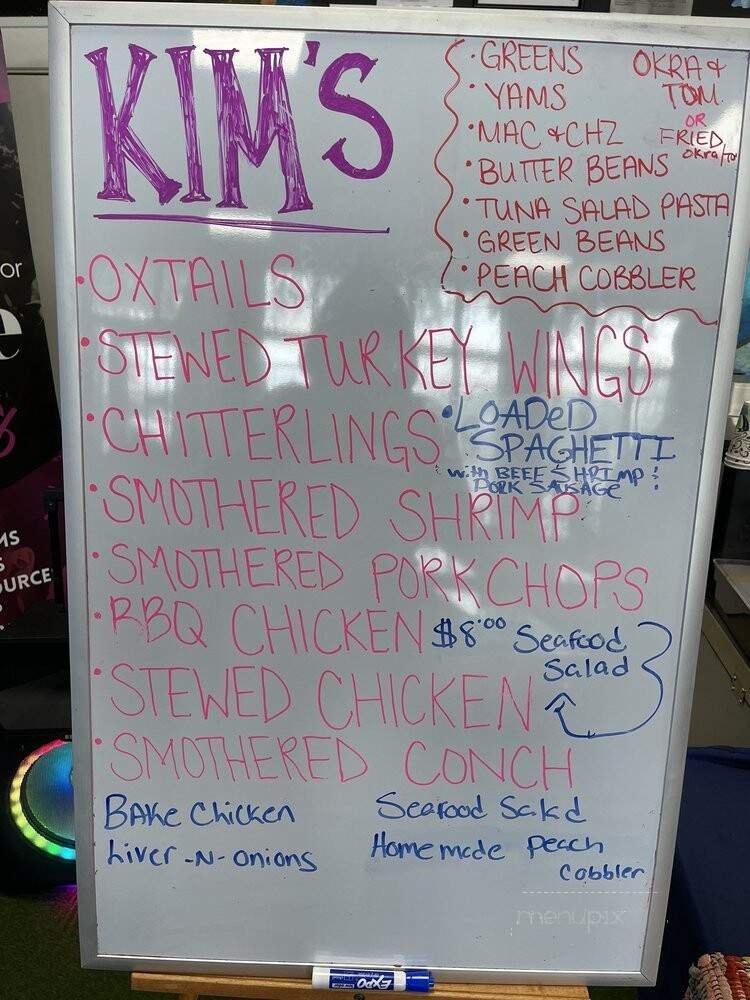 KIM'S
• GREENS
• YAMS
• MAC & CHZ
• BUTTER BEANS
• TUNA SALAD PASTA
• GREEN BEANS
• PEACH COBBLER
OKRA &
TOM
OR
FRIED
OKra/to
• OXTAILS
• STEWED TURKEY WINGS
• CHITTERLINGS
• LOADeD
SPAGHETTI
with BEEF SHRIMP
PORK SAUSAGE
• SMOTHERED SHRIMP
• SMOTHERED PORK CHOPS
• BBQ CHICKEN
$8.00 Seafood
Salad
• STEWED CHICKEN
• SMOTHERED CONCH
BAKe Chicken
Liver -N- onions
Seafood Salad
Home made Peach
Cobbler
EXPO
or
e
MS
S
OURCE
menupix